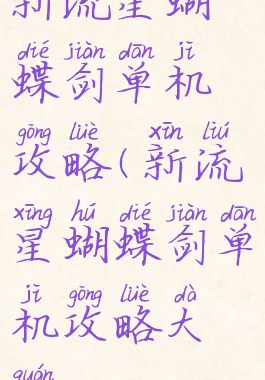 新流星蝴
dié jiàn dān jī
蝶剑单机
gōng lüè xīn liú
攻略(新流
xīng hú dié jiàn dān
星蝴蝶剑单
jī gōng lüè dà
机攻略大
quán